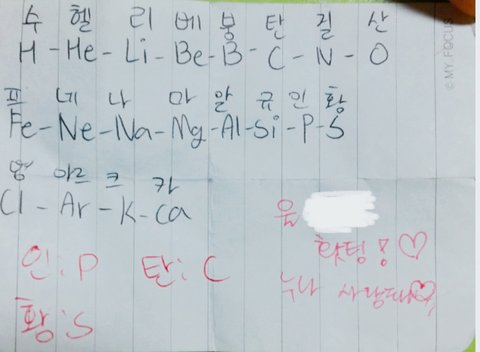 수 헬 리 베 붕 탄 질 산
H - He - Li - Be - B - C - N - O
프 네 나 마 알 규 인 황
Fe - Ne - Na - Mg - Al - Si - P - S
염 아르 크 카
Cl - Ar - K - Ca
인:P 탄:C
황:S
홧팅!♡
누나 사랑따♡
© MY FOCUS